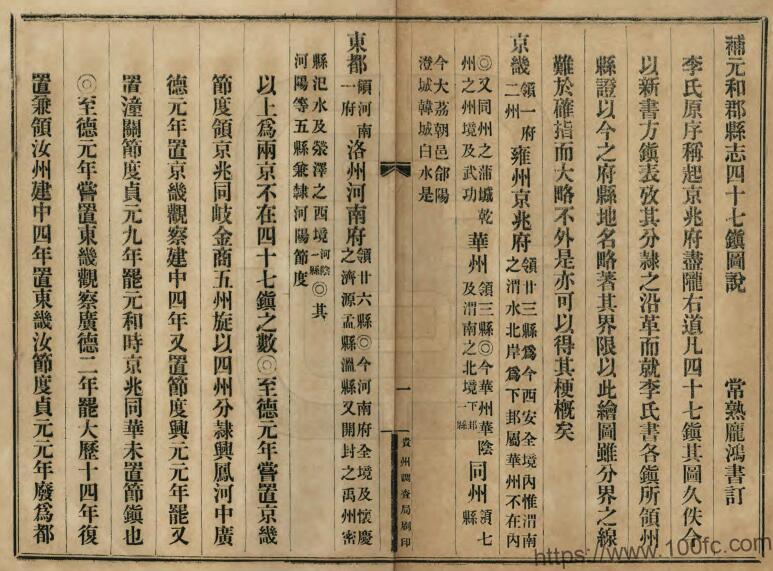 補元和郡縣志四十七鎭圖說 常熟龐鴻書訂
李氏原序稱起京兆府盡隴右道凡四十七鎭其圖久佚今
以新書方鎭表攷其分隸之沿革而就李氏書各鎭所領州
縣證以今之府縣地名略著其界限以此繪圖雖分界之線
難於確指而大略不外是亦可以得其梗概矣
京畿 領一府二州 雍州京兆府 領廿三縣爲今西安全境內惟渭南之渭水北岸爲下邽屬華州不在內
◎又同州之蒲城乾州之州境及武功 華州 領三縣◎今華州華陰及渭南之北境下邽一縣 同州 領七縣
今大荔朝邑郃陽澄城韓城白水是
東都 領河南一府 洛州河南府 領廿六縣◎今河南府全境及懷慶之濟源孟縣溫縣又開封之禹州密
縣汜水及滎澤之西境河陰一縣◎其河陽等五縣兼隸河陽節度
以上爲兩京不在四十七鎭之數◎至德元年嘗置京畿
節度領京兆同岐金商五州旋以四州分隸興鳳河中廣
德元年置京畿觀察建中四年又置節度興元元年罷又
置潼關節度貞元九年罷元和時京兆同華未置節鎭也
◎至德元年嘗置東畿觀察廣德二年罷大歷十四年復
置兼領汝州建中四年置東畿汝節度貞元元年廢爲都
一
貴州調查局刷印
https://www.100fc.com